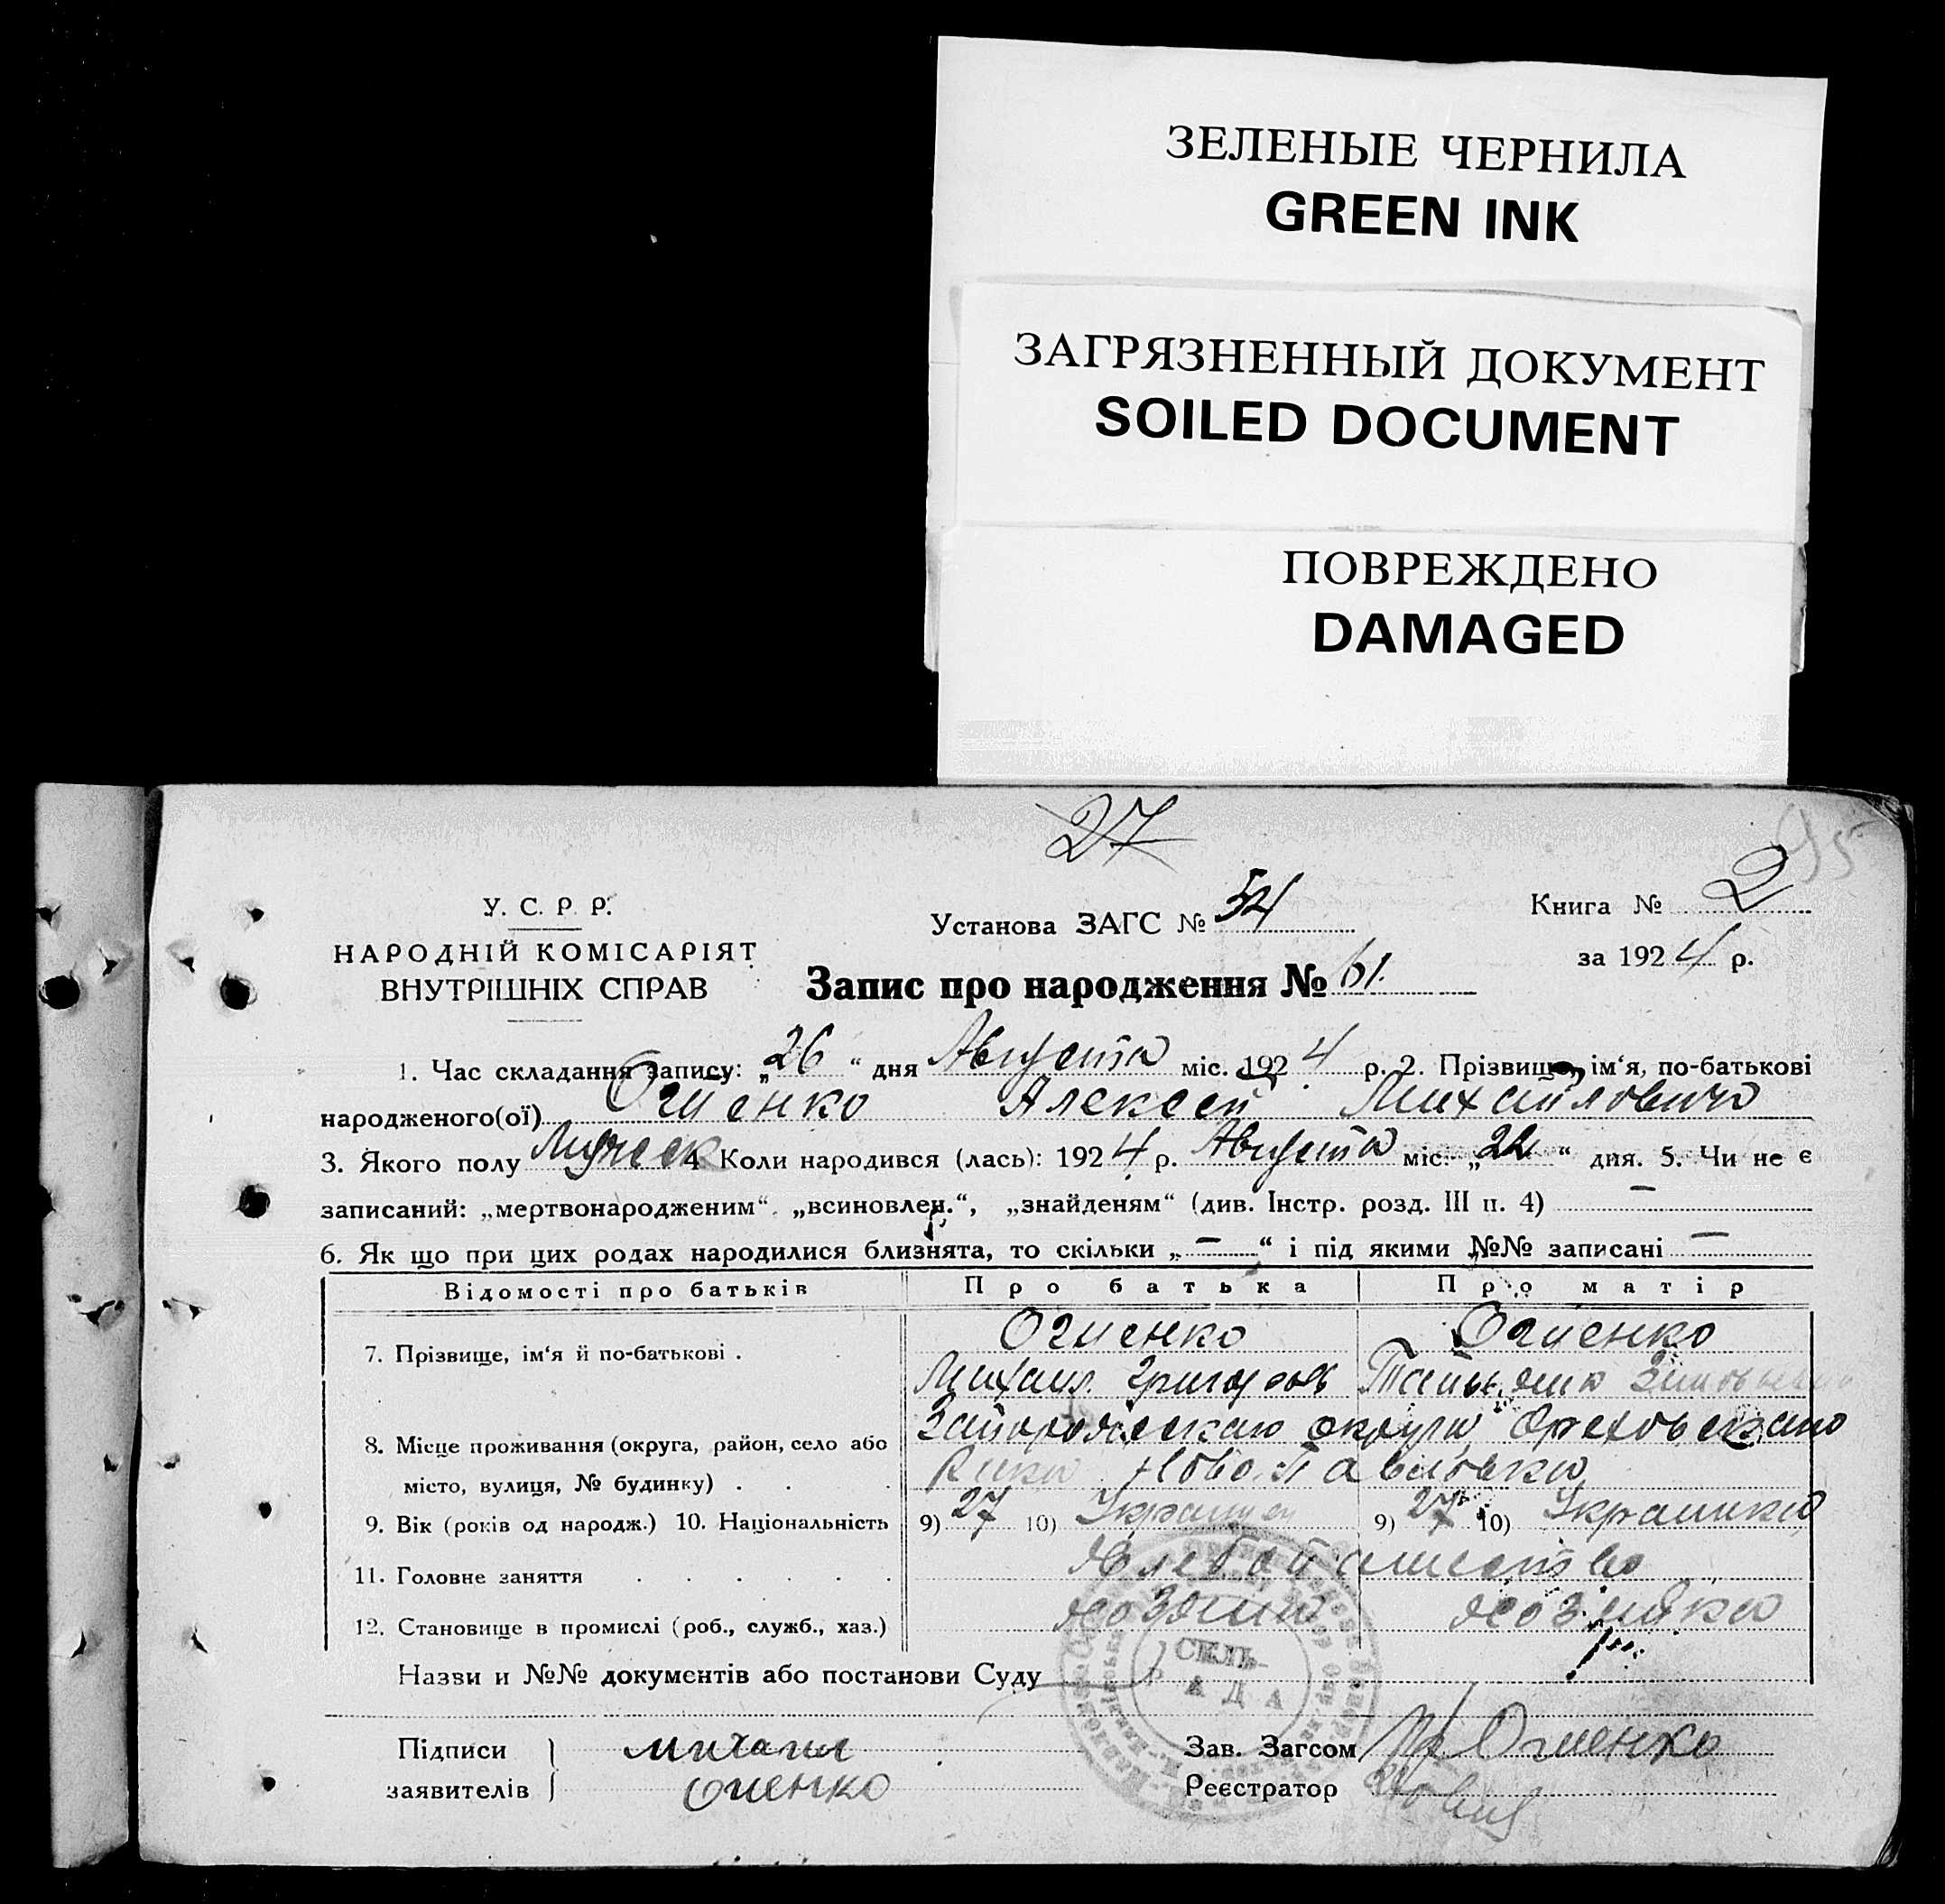 ЗЕЛЕНЫЕ ЧЕРНИЛА
GREEN INK
ЗАГРЯЗНЕННЫЙ ДОКУМЕНТ
SOILED DOCUMENT
ПОВРЕЖДЕНО
DAMAGED
27
95
У. С. Р. Р.
НАРОДНІЙ КОМІСАРІЯТ
ВНУТРІШНІХ СПРАВ
Установа ЗАГС № 54
Книга № 2
за 1924 р.
Запис про народження № 61.
1. Час складання запису: „26“ дня Августа міс. 1924 р. 2. Прізвище, ім‘я, по-батькові
народженого(ої) Огиенко Алексей Михайлович
3. Якого полу Мужеск 4. Коли народився (лась): 1924 р. Августа міс. „22“ дня. 5. Чи не є
записаний: „мертвонародженим“, „всиновлен.“, „знайденям“ (див. Інстр. розд. III п. 4) —
6. Як що при цих родах народилися близнята, то скільки „—“ і під якими №№ записані —
Відомості про батьків Про батька Про матір
7. Прізвище, ім‘я й по-батькові . Огиенко Огиенко
Михаил Григоров Татьяна
8. Місце проживання (округа, район, село або Запорожскаю округи Ореховскаго
місто, вулиця, № будинку) . . . Ново-Павловка
9. Вік (років од народж.) 10. Національність 9) 27 10) Украинец 9) 27 10) Украинка
11. Головне заняття . . . . . . Хлебопашество
12. Становище в промислі (роб., служб., хаз.) хозяин хозяйка
Назви и №№ документів або постанови Суду
СІЛЬ-
РАДА
Підписи михаил Зав. Загсом Огиенко
заявителів огиенко Реєстратор